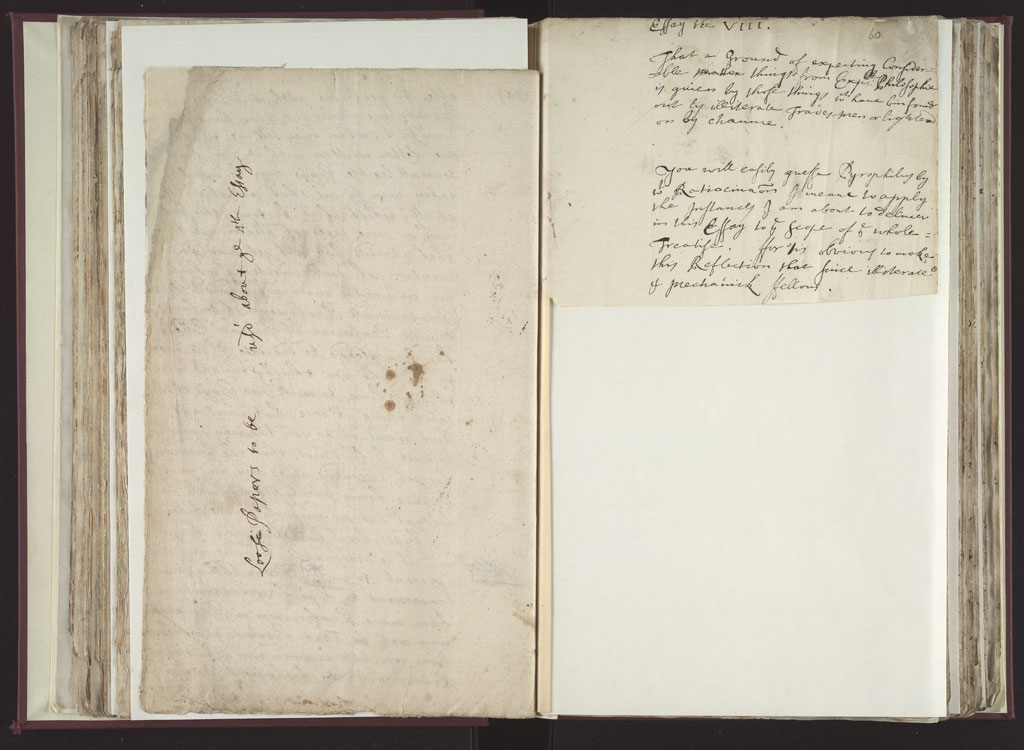 Loose Papers to be us'd about ye 4th Essay
60
Essay the VIII.
That a Ground of expecting Consider-
able things from Expll Philosophie
is given by those things wch have bin found
out by illiterate Tradesmen or lighted
on by chaunce.
You will easily guesse Pyrophilus by
wt Ratiocination I meane to apply
the Instances I am about to deliver
in this Essay to ye scope of ye whole =
Treatise. ffor 'tis obvious to make
this Reflection that since illiterate
& mechanick ffellows.